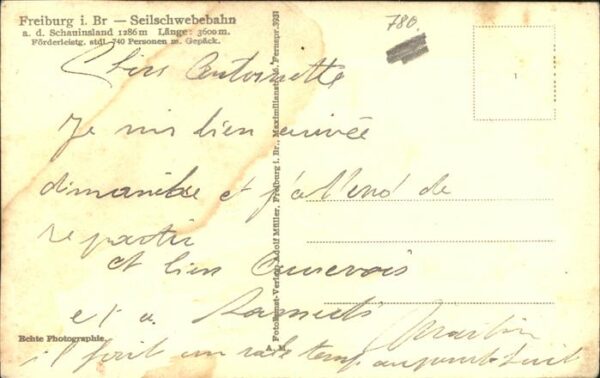 Freiburg i. Br — Seilschwebebahn
a. d. Schauinsland 1286 m Länge: 3600 m.
Förderleistg. stdl. 740 Personen m. Gepäck.
780.
1
Chère Antoinette
Je suis bien arrivée
dimanche et j'attend de
repartir
et bien Aurevoir
et a Samedi
Martin
il fait un sale temp aujourd'huit
Echte Photographie.
A. M.
FotoKunst-Verlag Adolf Müller, Freiburg i. Br., Maximilianstr. 16, Fernspr. 3931